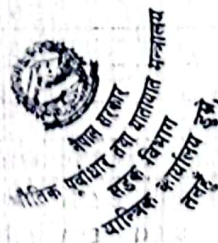 नेपाल सरकार
भौतिक पूर्वाधार तथा यातायात मन्त्रालय
सडक विभाग
यान्त्रिक कार्यालय